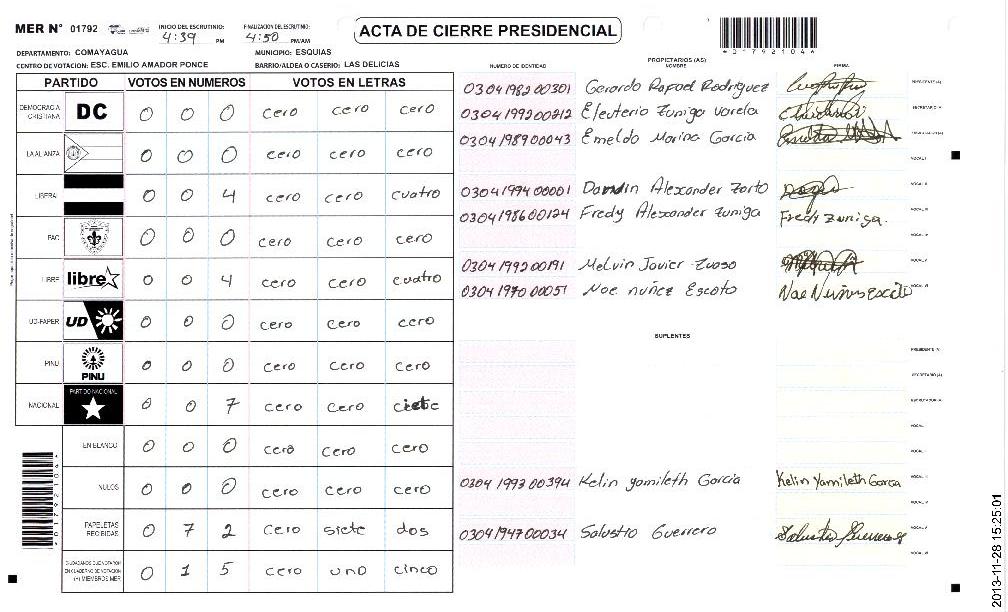 MER N° 01792
INICIO DEL ESCRUTINIO: 4:39 PM
FINALIZACION DEL ESCRUTINIO: 4:50 PM/AM
ACTA DE CIERRE PRESIDENCIAL
DEPARTAMENTO: COMAYAGUA
MUNICIPIO: ESQUIAS
CENTRO DE VOTACION: ESC. EMILIO AMADOR PONCE
BARRIO/ALDEA O CASERIO: LAS DELICIAS
PARTIDO VOTOS EN NUMEROS VOTOS EN LETRAS
DEMOCRACIA CRISTIANA DC 0 0 0 cero cero cero
LA ALIANZA 0 0 0 cero cero cero
LIBERAL 0 0 4 cero cero cuatro
PAC 0 0 0 cero cero cero
LIBRE libre 0 0 4 cero cero cuatro
UD-FAPER UD 0 0 0 cero cero cero
PINU PINU 0 0 0 cero cero cero
NACIONAL PARTIDO NACIONAL 0 0 7 cero cero ciete
EN BLANCO 0 0 0 cero cero cero
NULOS 0 0 0 cero cero cero
PAPELETAS RECIBIDAS 0 7 2 cero siete dos
CIUDADANOS QUE VOTARON EN CUADERNO DE VOTACION (+) MIEMBROS MER 0 1 5 cero uno cinco
NUMERO DE IDENTIDAD PROPIETARIOS (AS) NOMBRE FIRMA
0304198200301 Gerardo Rafael Rodriguez PRESIDENTE (A)
0304199200212 Eleuterio Zuniga Varela SECRETARIO (A)
0304198900043 Emeldo Marina Garcia ESCRUTADOR (A)
VOCAL I
0304199400001 Darwin Alexander Zorto VOCAL II
0304198600124 Fredy Alexander Zuniga Fredy Zuniga. VOCAL III
VOCAL IV
0304199200191 Melvin Javier VOCAL V
0304197000051 Noe nuñez Escoto VOCAL VI
SUPLENTES
PRESIDENTE (A)
SECRETARIO (A)
ESCRUTADOR (A)
VOCAL I
VOCAL II
0304199300394 Kelin yamileth Garcia Kelin Yamileth Garcia VOCAL III
VOCAL IV
0304194700034 Salustro Guerrero VOCAL V
VOCAL VI
*01792104*
2013-11-28 15:25:01